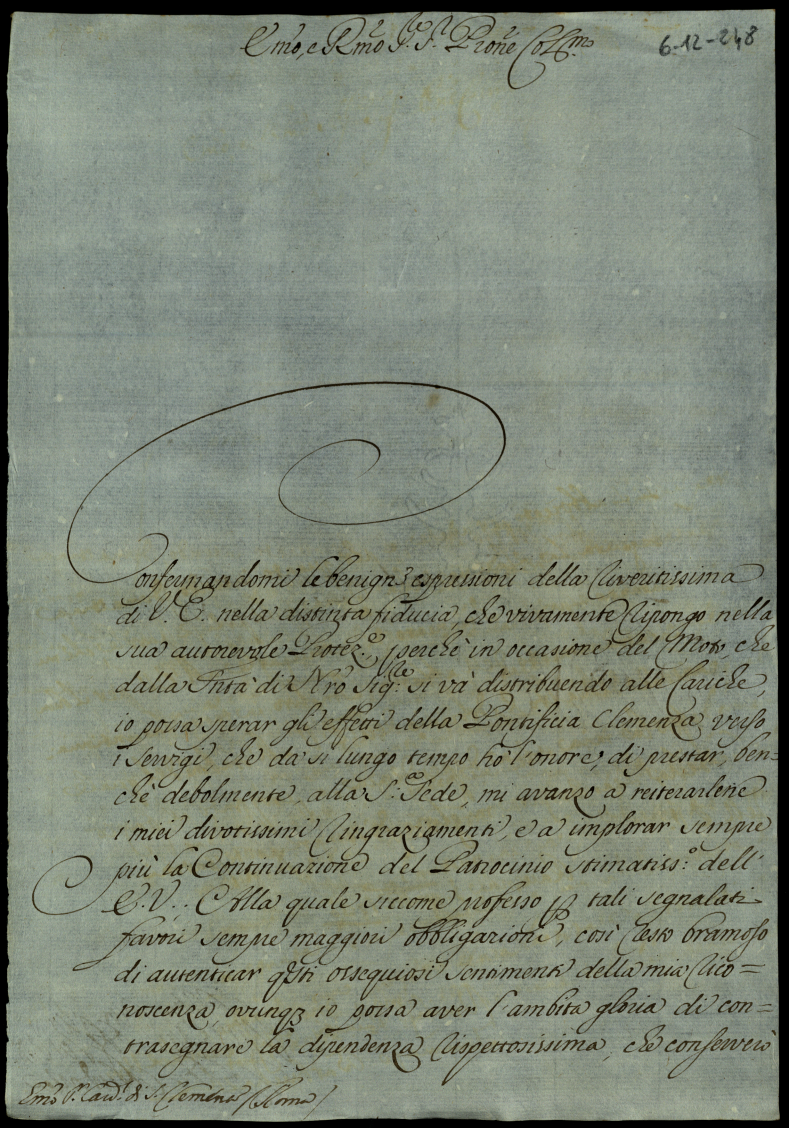 Emo, e Rmo Sig.r Sig.r Prone Colmo
6-12-248
Confermandomi le benigne espressioni della riveritissima
di V. E. nella distinta fiducia, che vivamente ripongo nella
sua autorevole Protez.e, perchè in occasione del Moto, che
dalla Sntà di Nro Sig.re si và distribuendo alle Cariche,
io possa sperar gli effetti della Pontificia Clemenza verso
i servigi, che da sì lungo tempo hò l'onore, di prestar, ben=
chè debolmente, alla S. Sede, mi avanzo a reiterarlene
i miei divotissimi ringraziamenti, e a implorar sempre
più la Continuazione del Patrocinio stimatiss.o dell'
E. V.. Alla quale siccome professo p tali segnalati
favori sempre maggiori obbligazioni, così resto bramoso
di autenticar qsti ossequiosi sentimenti della mia rico=
noscenza, ovunq; io possa aver l'ambita gloria di con=
trasegnare la dipendenza rispettosissima, che conserverò
Emo S. Card. di S. Clemente (Roma)